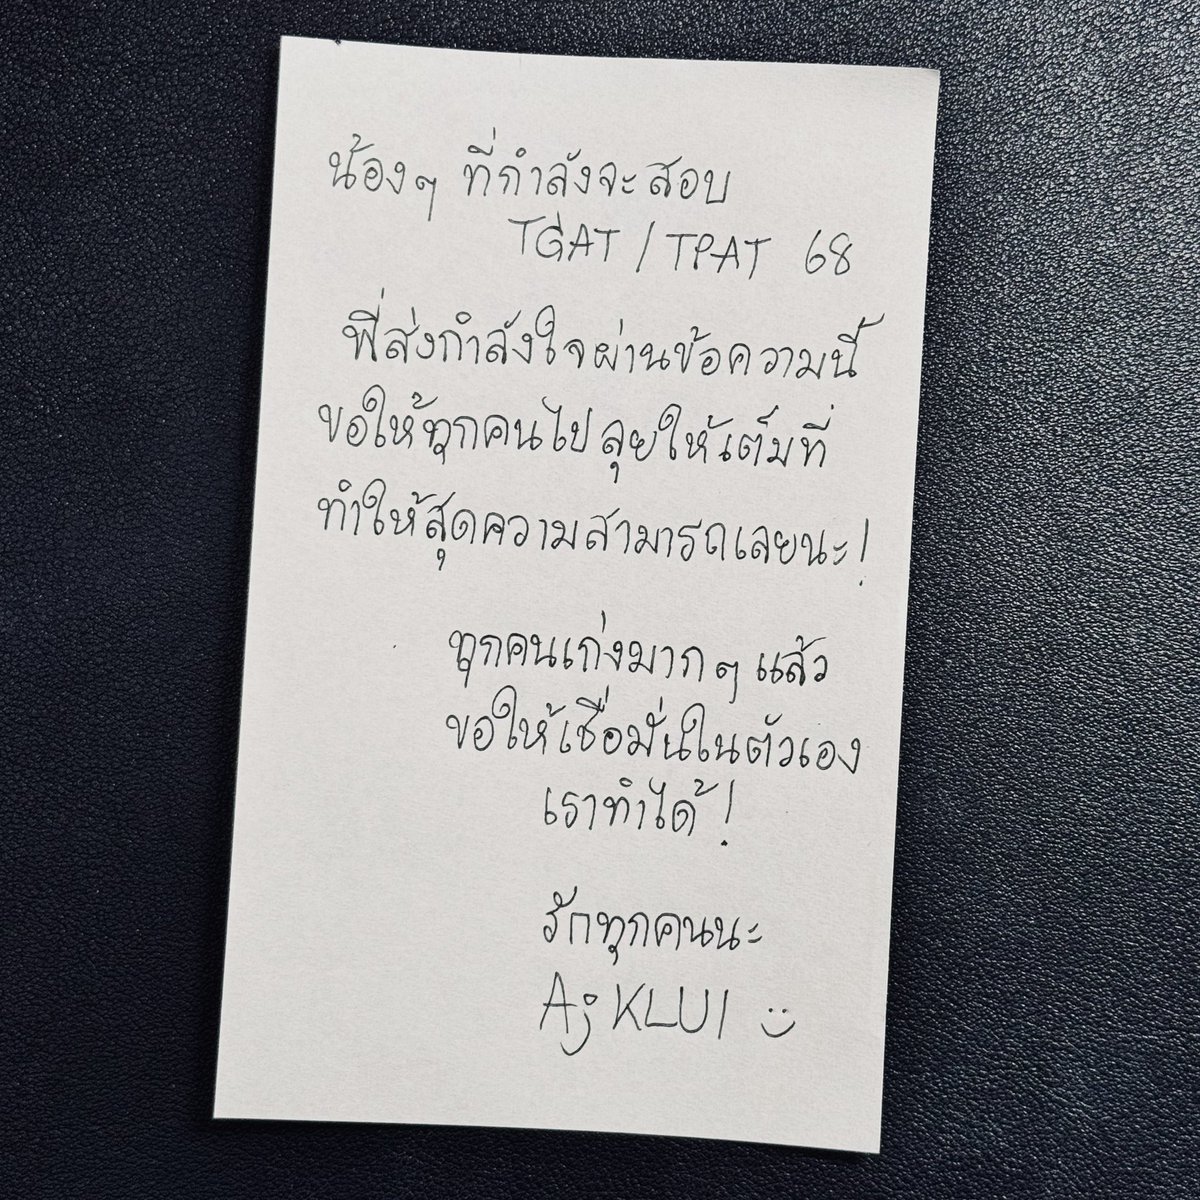 น้องๆ ที่กำลังจะสอบ
TGAT / TPAT 68
พี่ส่งกำลังใจผ่านข้อความนี้
ขอให้ทุกคนไปลุยให้เต็มที่
ทำให้สุดความสามารถเลยนะ!
ทุกคนเก่งมากๆ แล้ว
ขอให้เชื่อมั่นในตัวเอง
เราทำได้!
รักทุกคนนะ
Aj KLUI :)